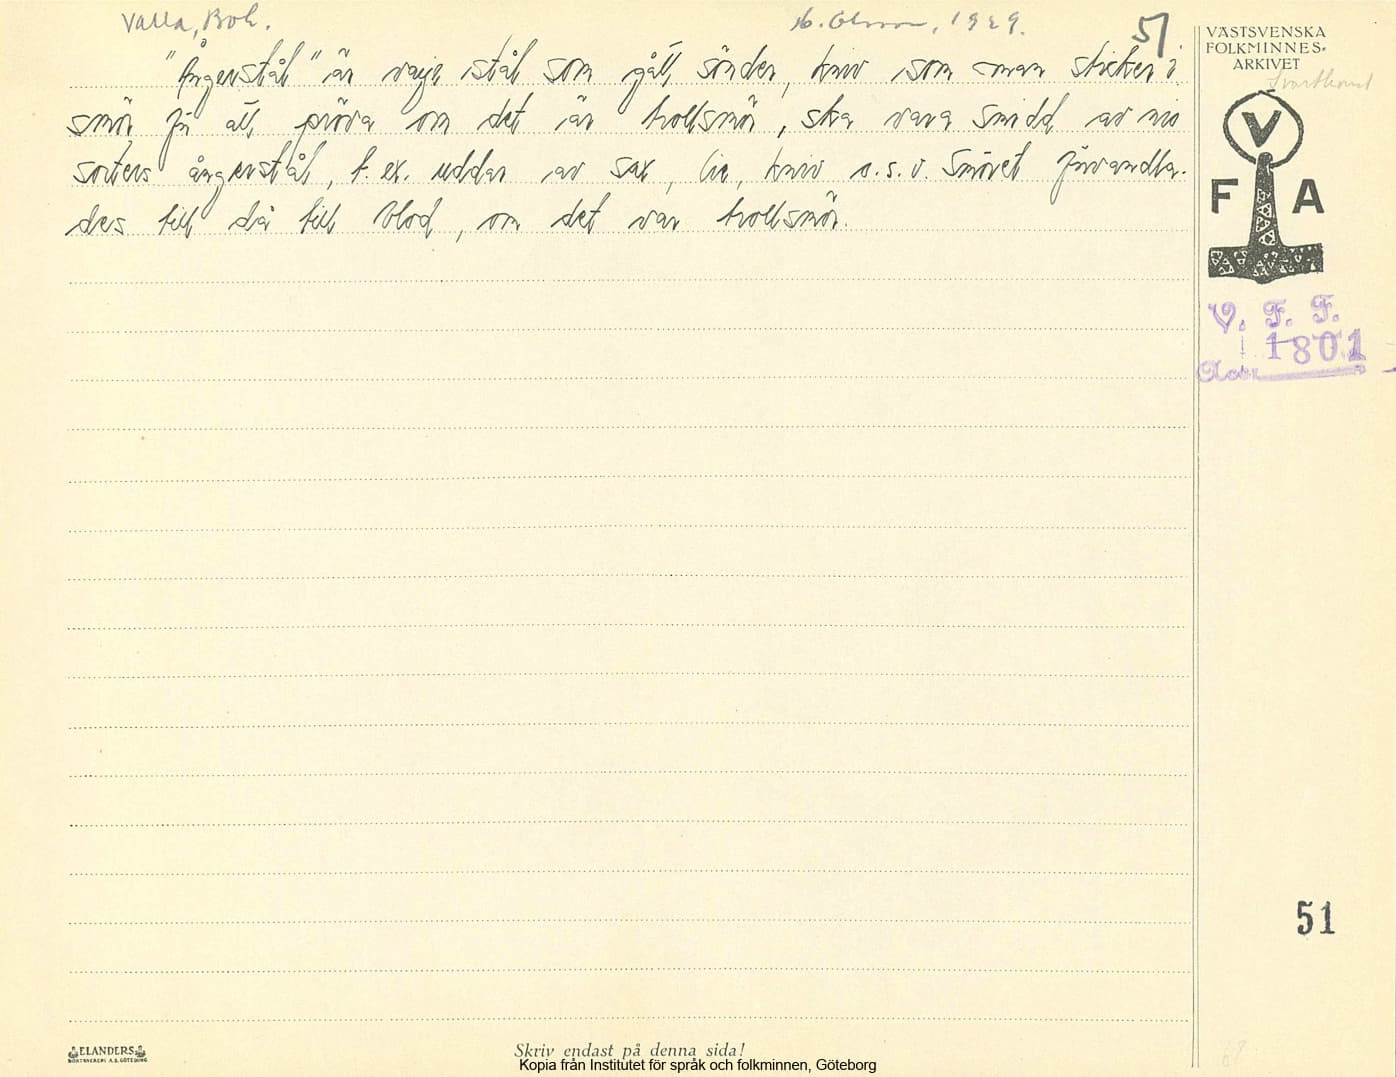 Valla, Boh.
Olsson, 1929.
51.
"Ångerstål" är varje stål som gått sönder, kniv som man sticker i
smör för att pröva om det är trollsmör, ska vara smidd av nio
sorters ångerstål, t. ex. uddar av sax, lie, kniv o.s.v. Smöret förvandla-
des till då till blod, om det var trollsmör.
VÄSTSVENSKA
FOLKMINNES-
ARKIVET
V
F A
V. F. F.
1801
51
ELANDERS
BOKTRYCKERI A. B. GÖTEBORG
Skriv endast på denna sida!
Kopia från Institutet för språk och folkminnen, Göteborg